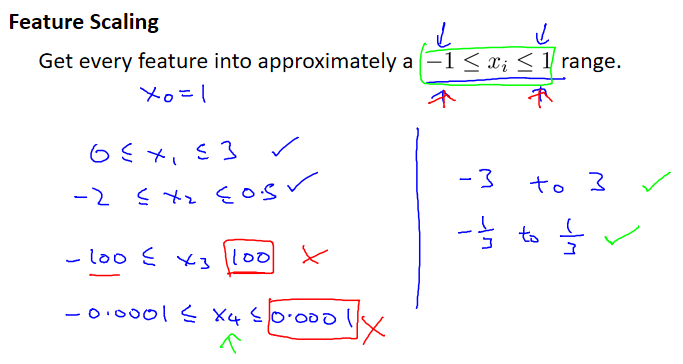 Feature Scaling
Get every feature into approximately a −1 ≤ xᵢ ≤ 1 range.
x₀=1
0 ≤ x₁ ≤ 3 ✓
-2 ≤ x₂ ≤ 0.5 ✓
-100 ≤ x₃ 100 ✗
-0.0001 ≤ x₄ ≤ 0.0001 ✗
-3 to 3 ✓
-1/3 to 1/3 ✓